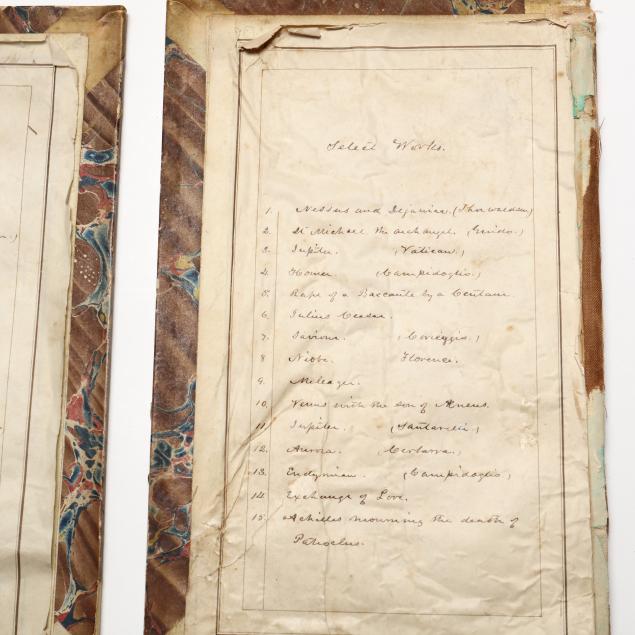 Select Works.
1. Nessus and Dejanira. (Thorwaldsen)
2. St Michael the archangel. (Guido.)
3. Jupiter. (Vatican.)
4. Homer (Campidoglio.)
5. Rape of a Baccante by a Centaur.
6. Julius Ceasar.
7. Saviour. (Coreggio.)
8 Niobe. Florence.
9. Meleager.
10. Venus with the son of Aeneus.
11 Jupiter. (Santarelli)
12. Aurora.
13. Endymion. (Campidoglio,)
14 Exchange of Love.
15. Achilles mourning the death of
Patroclus.
.)